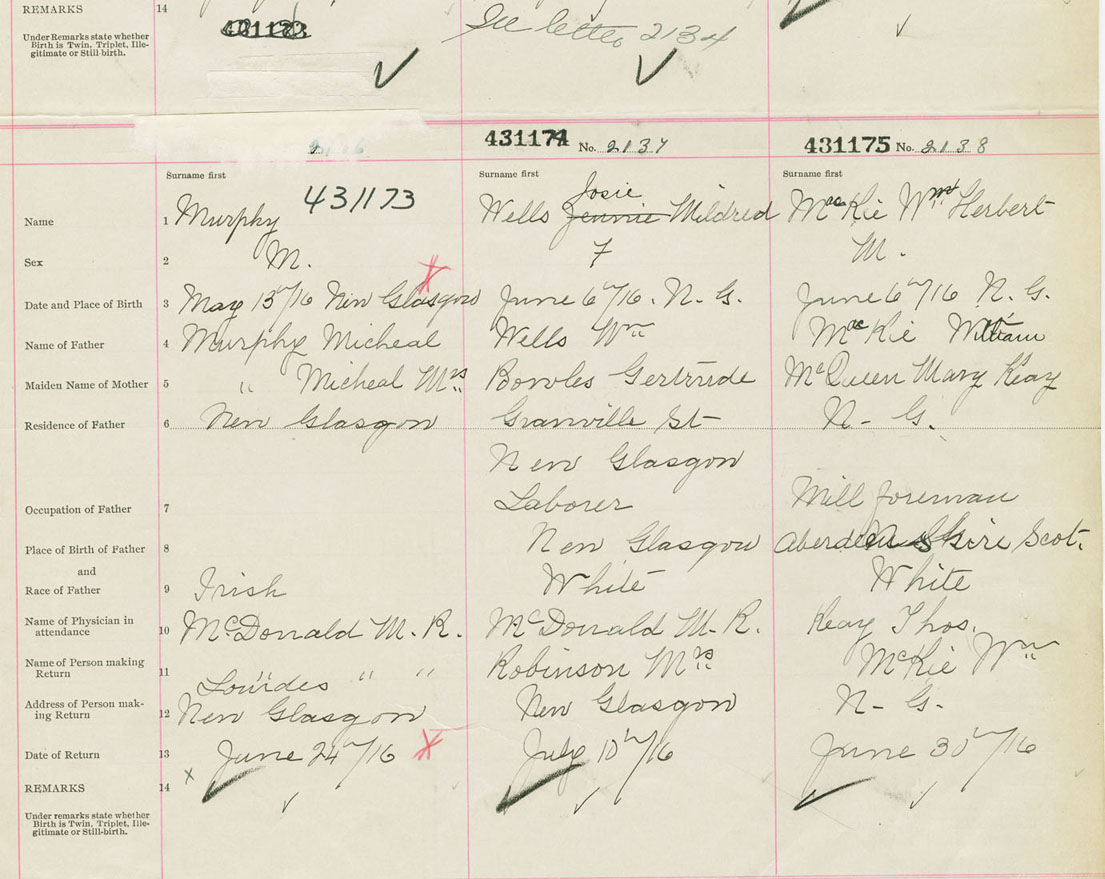 REMARKS 14
Under Remarks state whether
Birth is Twin, Triplet, Ille-
gitimate or Still-birth.
431173
See letter 2134
431174 No. 2137
431175 No. 2138
Surname first
Surname first
Surname first
Name 1 Murphy 431173
Wells Josie Jennie Mildred
MacKie Wm Herbert
Sex 2 M.
F
M.
Date and Place of Birth 3 May 15"/16 New Glasgow
June 6"/16. N. G.
June 6"/16 N. G.
Name of Father 4 Murphy Micheal
Wells Wm
MacKie William
Maiden Name of Mother 5 " Micheal Mrs
Bowles Gertrude
McQueen Mary Keay
Residence of Father 6 New Glasgow
Granville St
New Glasgow
N- G.
Occupation of Father 7
Laborer
Mill foreman
Place of Birth of Father 8
New Glasgow
Aberdeen Shire Scot.
and
Race of Father 9 Irish
White
White
Name of Physician in
attendance 10 McDonald M. R.
McDonald M. R.
Keay Thos.
Name of Person making
Return 11 Lourdes " "
Robinson Mrs
McKie Wm
Address of Person mak-
ing Return 12 New Glasgow
New Glasgow
N- G.
Date of Return 13 June 24"/16
July 10"/16
June 30"/16
REMARKS 14
Under remarks state whether
Birth is Twin, Triplet, Ille-
gitimate or Still-birth.